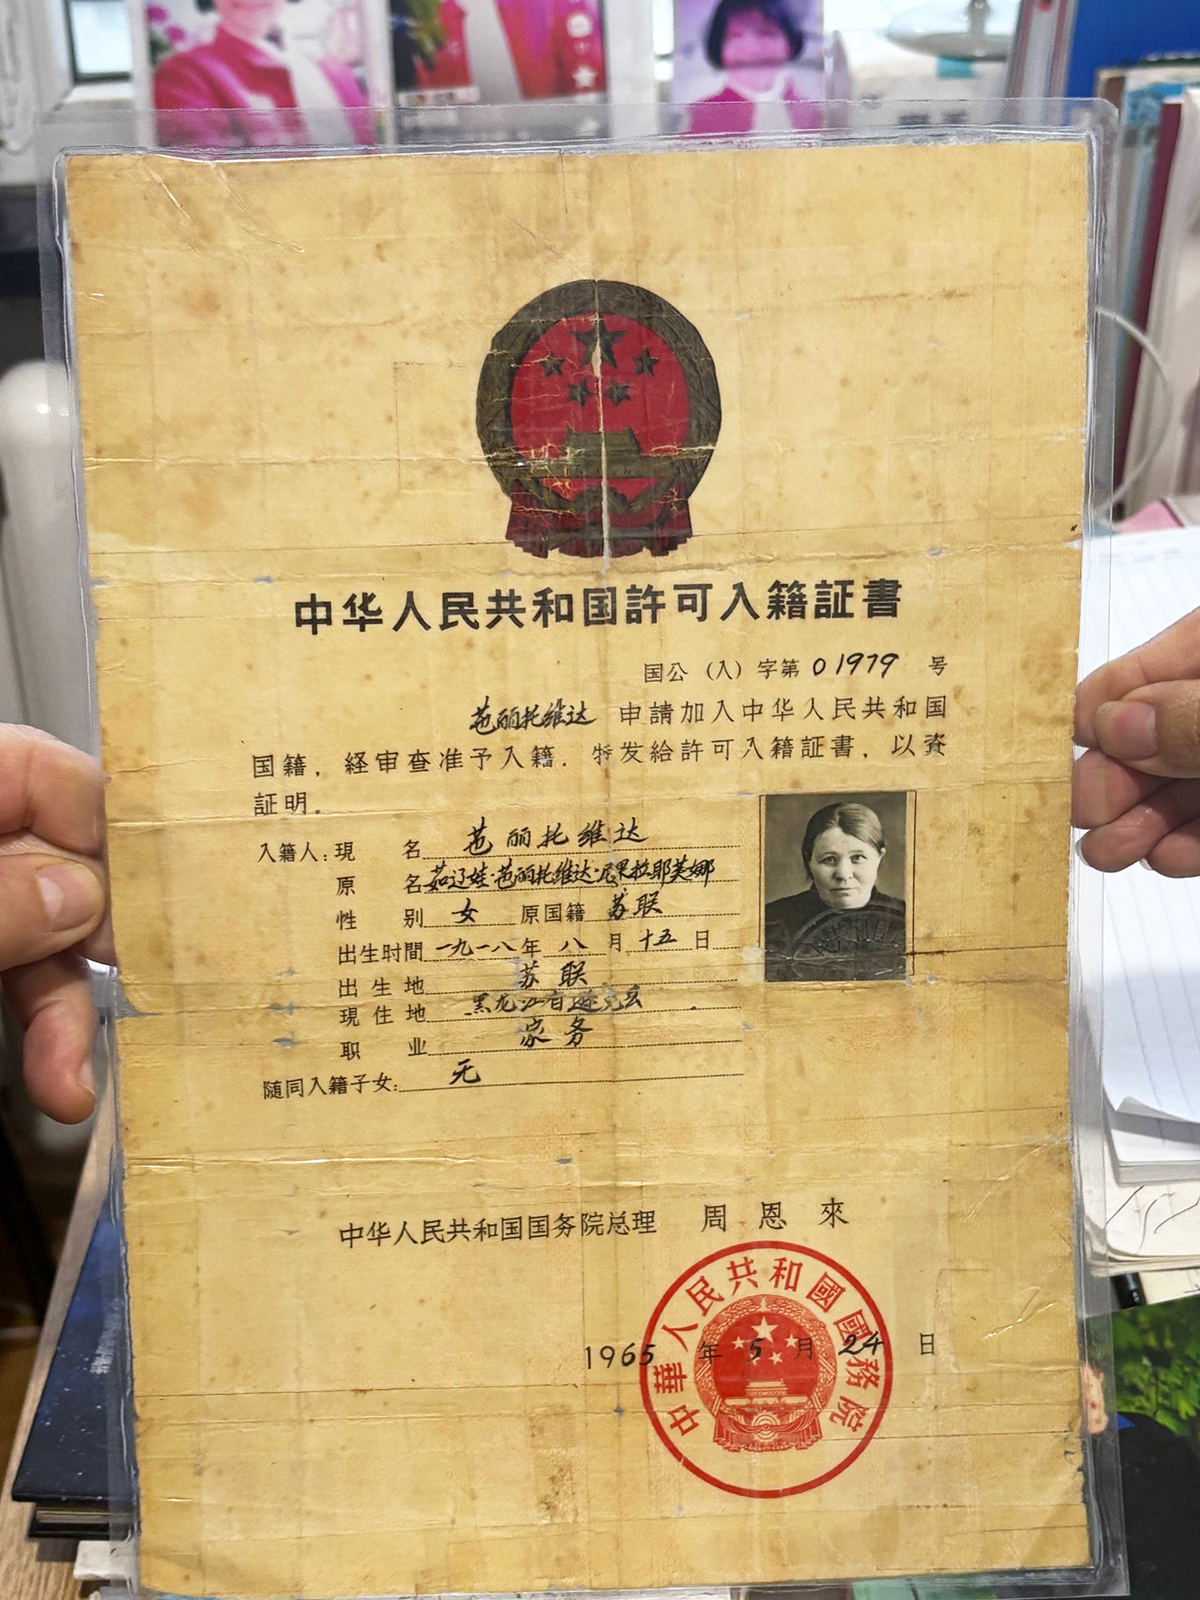 中华人民共和国許可入籍証書
国公（入）字第01979号
芭丽托维达 申請加入中华人民共和国
国籍，経审查准予入籍．特发給許可入籍証書，以資
証明。
入籍人：現名 芭丽托维达
原名 茹辽娃·芭丽托维达·尼果拉耶芙娜
性别 女 原国籍 苏联
出生时間 一九一八年 八 月 十五 日
出生地 苏联
現住地 黑龙江省逊克县
职业 家务
随同入籍子女： 无
中华人民共和国国务院总理 周恩來
1965年5月24日
中華人民共和國國務院